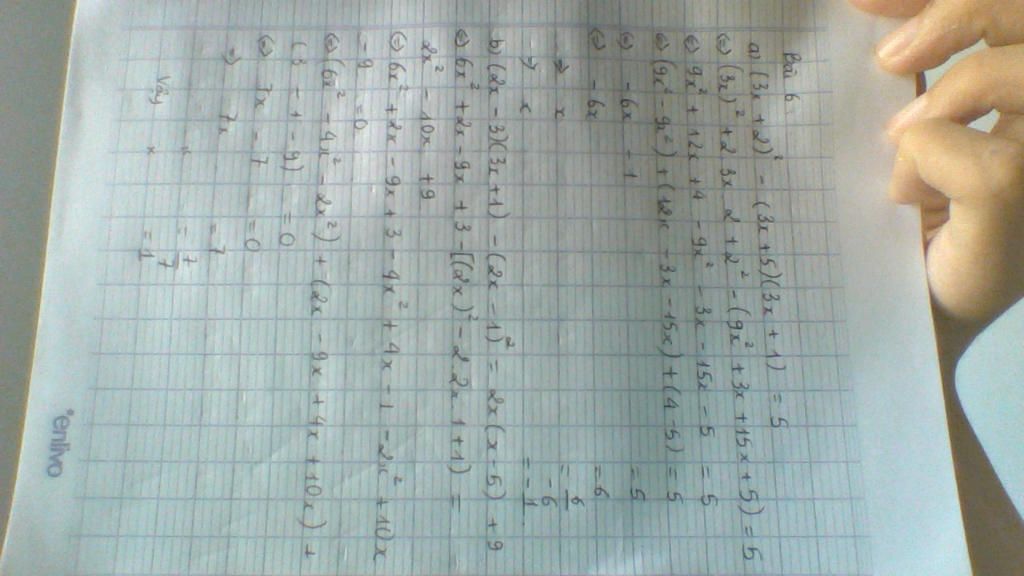 Bài 6
a) (3x + 2)² - (3x + 5)(3x + 1) = 5
(=) (3x)² + 2 3x 2 + 2² - (9x² + 3x + 15x + 5) = 5
(=) 9x² + 12x + 4 - 9x² - 3x - 15x - 5 = 5
(=) (9x² - 9x²) + (12x - 3x - 15x) + (4 - 5) = 5
(=) -6x - 1 = 5
(=) -6x = 6
=) x = 6/-6
=) x = -1
b) (2x - 3)(3x + 1) - (2x - 1)² = 2x(x - 5) + 9
(=) 6x² + 2x - 9x + 3 - [(2x)² - 2 2x 1 + 1) =
2x² - 10x + 9
(=) 6x² + 2x - 9x + 3 - 4x² + 4x - 1 - 2x² + 10x
- 9 = 0
(=) (6x² - 4x² - 2x²) + (2x - 9x + 4x + 10x) +
(3 - 1 - 9) = 0
(=) 7x - 7 = 0
=) 7x = 7
x = 7/7
Vậy x = 1
enlivo